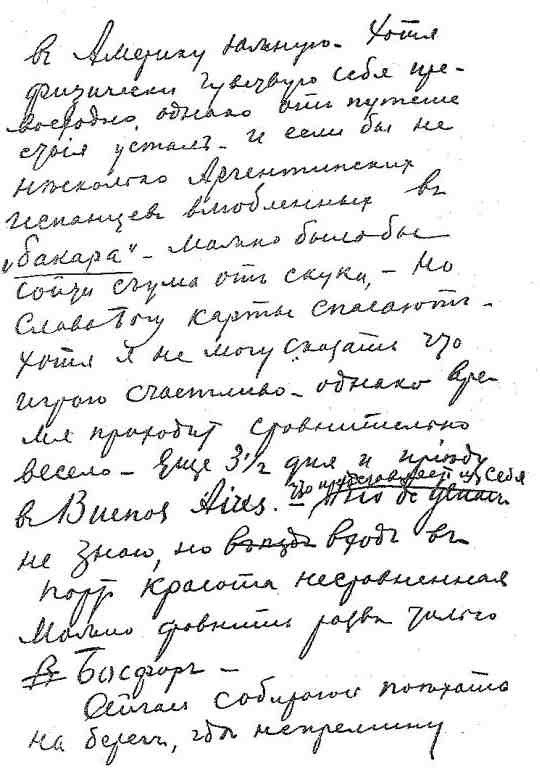 въ Америку южную. Хотя
физически чувствую себя пре-
восходно, однако отъ путеше
ствія усталъ. И если бы не
нѣсколько Аргентинскихъ
испанцевъ влюбленныхъ въ
„бакара“ - можно было бы
сойти съ ума отъ скуки, - но
слава Богу карты спасаютъ -
Хотя я не могу сказать что
играю счастливо - однако вре-
мя проходитъ сравнительно
весело - Еще 3 1/2 дня и пріѣду
въ Buenos Aires. - что представляетъ изъ себя
не знаю, но въѣздъ входъ въ
портъ красота несравненная
Можно сравнить развѣ только
въ Босфоръ -
Сейчасъ собираюсь поѣхать
на берегъ, гдѣ непремину